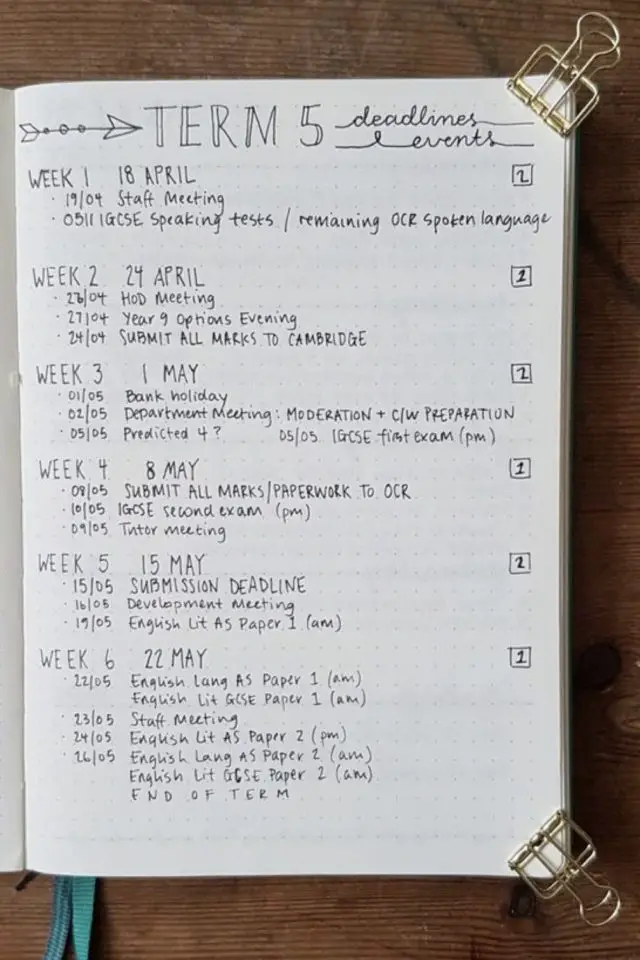 TERM 5 deadlines & events
WEEK 1 18 APRIL 2
· 19/04 Staff Meeting
· 0511 IGCSE Speaking tests / remaining OCR spoken language
WEEK 2 24 APRIL 1
· 26/04 HOD Meeting
· 27/04 Year 9 Options Evening
· 24/04 SUBMIT ALL MARKS TO CAMBRIDGE
WEEK 3 1 MAY 2
· 01/05 Bank holiday
· 02/05 Department Meeting: MODERATION + C/W PREPARATION
· 05/05 Predicted 4? 05/05 IGCSE first exam (pm)
WEEK 4 8 MAY 1
· 08/05 SUBMIT ALL MARKS/PAPERWORK TO OCR
· 10/05 IGCSE second exam (pm)
· 09/05 Tutor meeting
WEEK 5 15 MAY 2
· 15/05 SUBMISSION DEADLINE
· 16/05 Development Meeting
· 19/05 English Lit AS Paper 1 (am)
WEEK 6 22 MAY 1
· 22/05 English Lang AS Paper 1 (am)
English Lit GCSE Paper 1 (am)
· 23/05 Staff Meeting
· 24/05 English Lit AS Paper 2 (pm)
· 26/05 English Lang AS Paper 2 (am)
English Lit GCSE Paper 2 (am)
END OF TERM